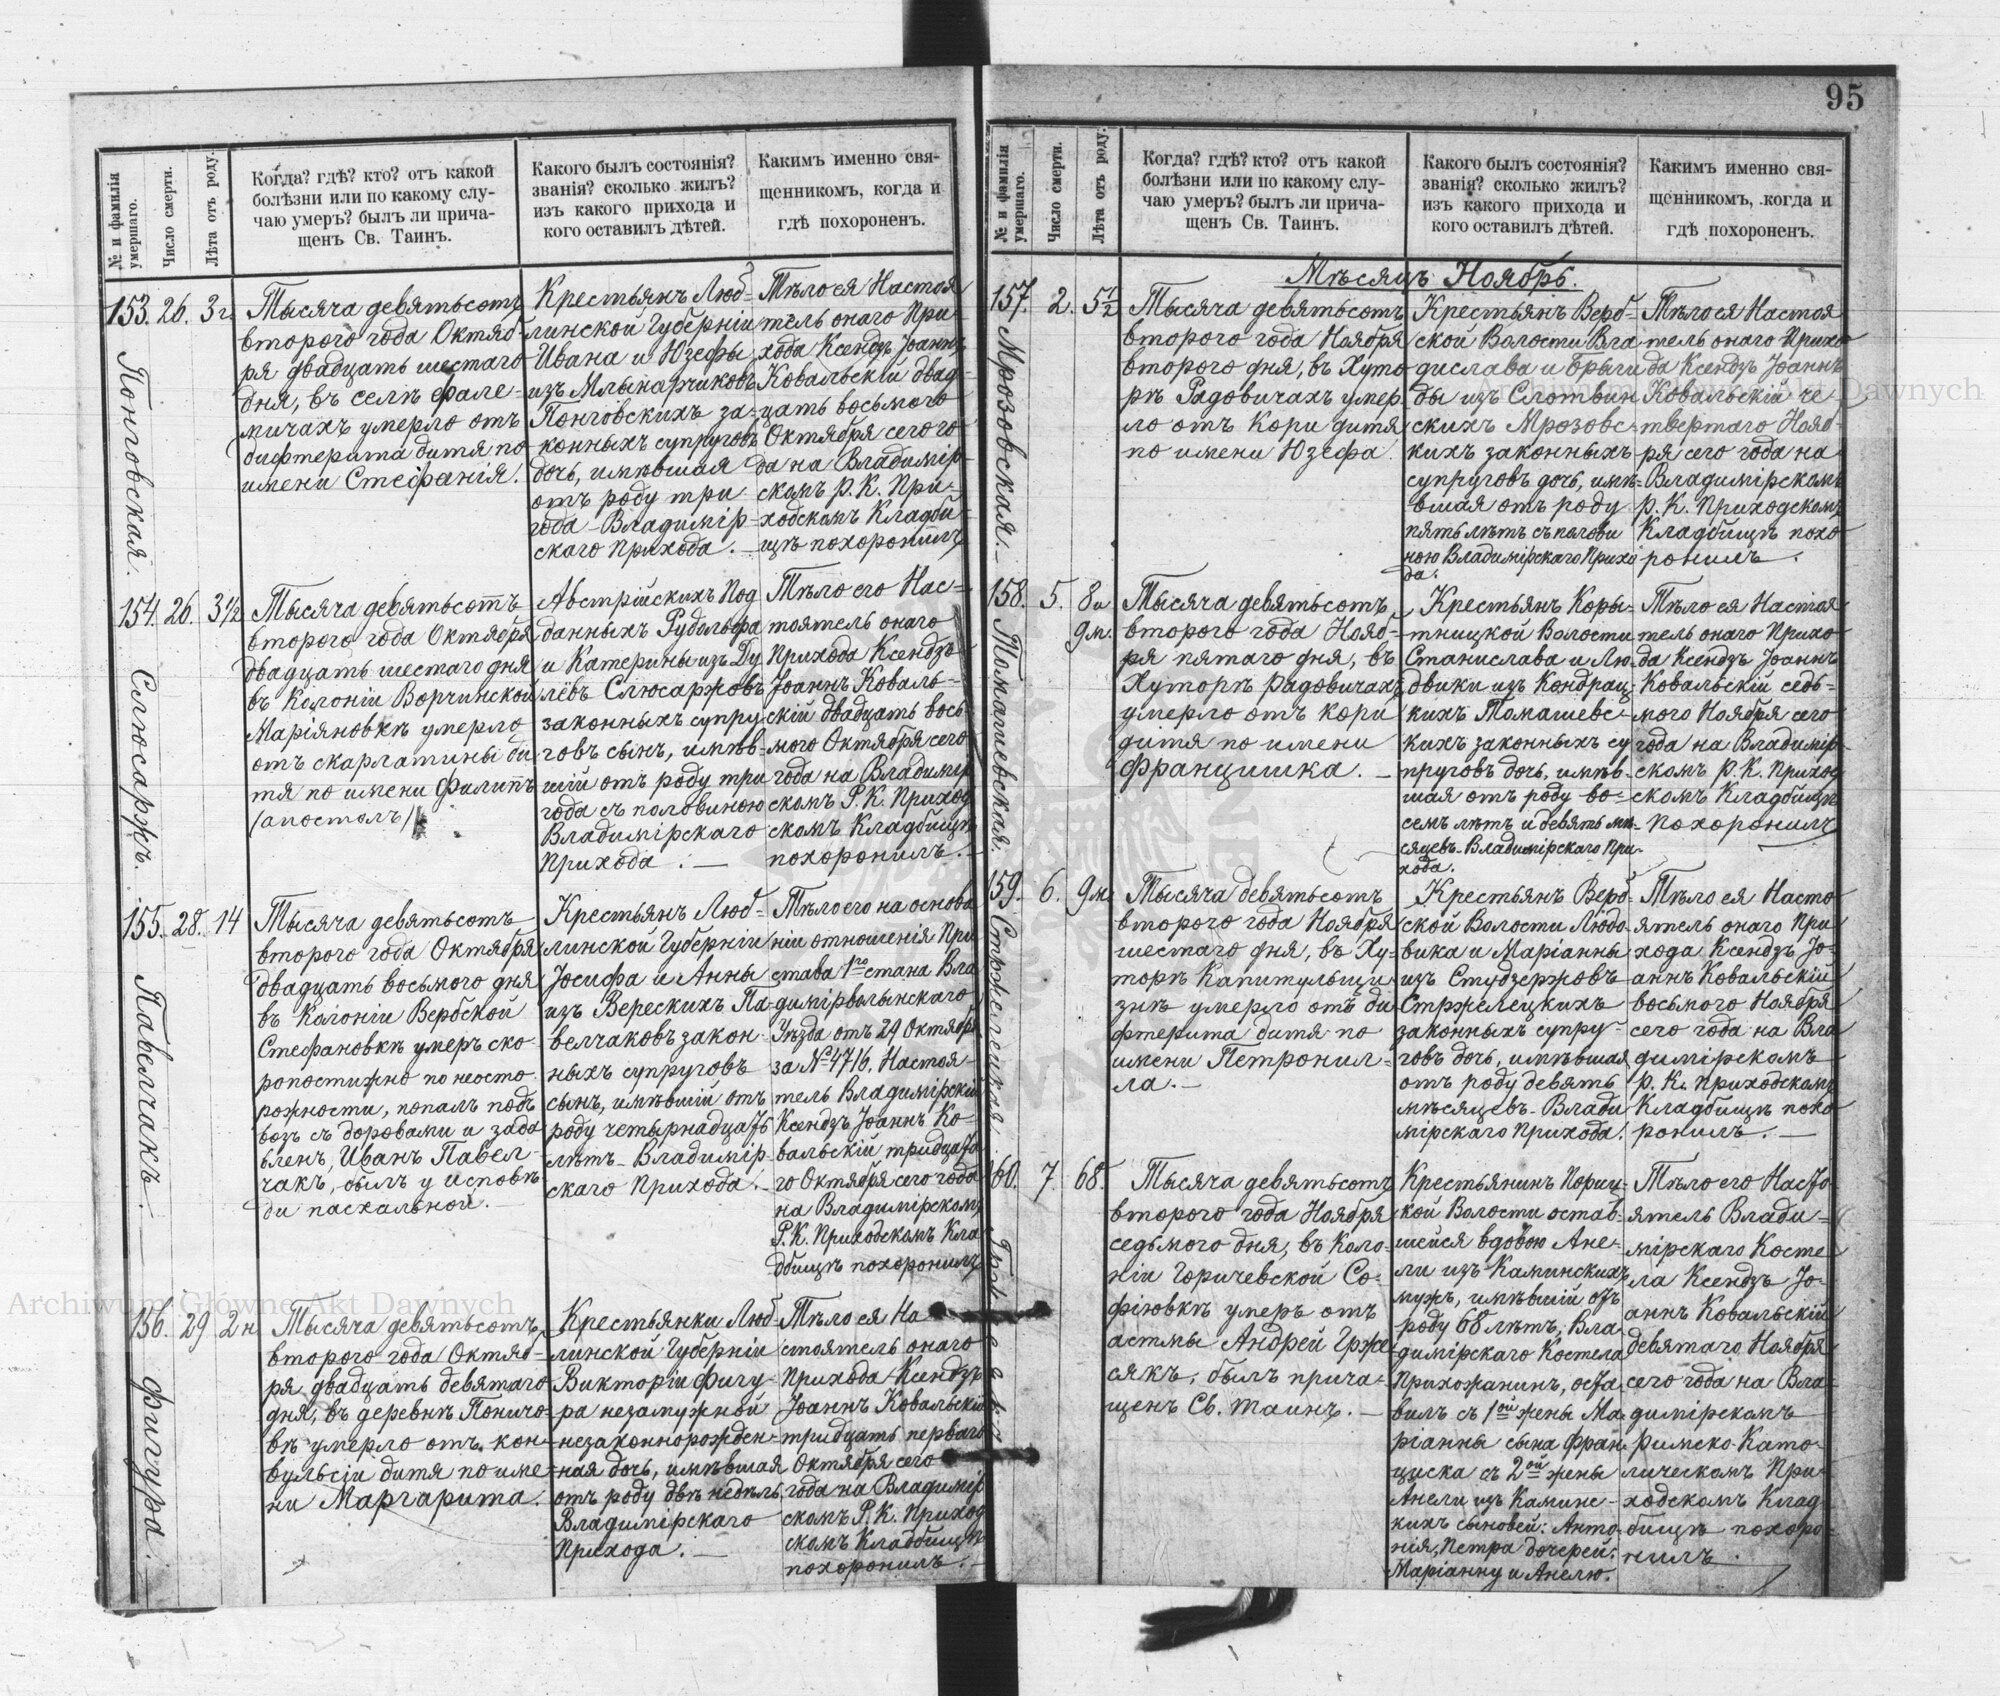 95
№ и фамилія умершаго.
Число смерти.
Лѣта отъ роду.
Когда? гдѣ? кто? отъ какой
болѣзни или по какому слу-
чаю умеръ? былъ ли прича-
щенъ Св. Таинъ.
Какого былъ состоянія?
званія? сколько жилъ?
изъ какого прихода и
кого оставилъ дѣтей.
Какимъ именно свя-
щенникомъ, когда и
гдѣ похороненъ.
153. 26. 3 г.
Понговская.
Тысяча девятьсотъ
второго года Октяб-
ря двадцать шестаго
дня, въ селѣ Фале-
мичахъ умерло отъ
дифтерита дитя по
имени Стефанія.
Крестьянъ Люб-
линской Губерніи
Ивана и Юзефы
изъ Млынарчиковъ
Понговскихъ за-
конныхъ супруговъ
дочь, имѣвшая
отъ роду три
года - Владимір-
скаго Прихода. —
Тѣло ея Настоя
тель онаго При-
хода Ксендзъ Іоаннъ
Ковальскій двад-
цать восьмого
Октября сего го
да на Владимір-
скомъ Р. К. При-
ходскомъ Кладби-
щѣ похоронилъ
154. 26. 3½
Селюсаржъ.
Тысяча девятьсотъ
второго года Октября
двадцать шестаго дня
въ Колоніи Ворчинской
Маріяновкѣ умерло
отъ скарлатины ди
тя по имени Филипъ
(апостолъ)
Австрійскихъ Под
данныхъ Рудольфа
и Катерины изъ Ду
левъ Слюсаржовъ
законныхъ супру
говъ сынъ, имѣв-
шій отъ роду три
года съ половиною
Владимірскаго
Прихода. —
Тѣло его Нас-
тоятель онаго
Прихода Ксендзъ
Іоаннъ Коваль-
скій двадцать вось
мого Октября сего
года на Владимір
скомъ Р. К. Приход
скомъ Кладбищѣ
похоронилъ. —
155. 28. 14
Павелчакъ.
Тысяча девятьсотъ
второго года Октября
двадцать восьмого дня
въ Колоніи Вербской
Стефановкѣ умеръ ско
ропостижно по неосто
рожности, попалъ подъ
возъ съ доровами и зада
вленъ, Иванъ Павел-
чакъ, былъ у исповѣ
ди пасхальной. —
Крестьянъ Люб-
линской Губерніи
Іосифа и Анны
изъ Верескихъ Па-
велчаковъ закон-
ныхъ супруговъ
сынъ, имѣвшій отъ
роду четырнадцать
лѣтъ - Владимір-
скаго Прихода. —
Тѣло его на основа
ніи отношенія При
става 1го стана Вла
димірволынскаго
Уѣзда отъ 29 Октября
за № 4716. Настоя-
тель Владимірскій
Ксендзъ Іоаннъ Ко-
вальскій тридцата
го Октября сего года
на Владимірскомъ
Р. К. Приходскомъ Кла
дбищѣ похоронилъ
156. 29 2 н
Фигура.
Тысяча девятьсотъ
второго года Октяб-
ря двадцать девятаго
дня, въ деревнѣ Поничо-
вѣ умерло отъ кон-
вульсіи дитя по име
ни Маргарита.
Крестьянки Люб
линской Губерніи
Викторіи Фигу-
ра незамужной
незаконнорожден-
ная дочь, имѣвшая
отъ роду двѣ недѣль,
Владимірскаго
Прихода. —
Тѣло ея На
стоятель онаго
Прихода Ксендзъ
Іоаннъ Ковальскій
тридцать перваго
Октября сего
года на Владимір
скомъ Р. К. Приход
скомъ Кладбищѣ
похоронилъ. —
№ и фамилія умершаго.
Число смерти.
Лѣта отъ роду.
Когда? гдѣ? кто? отъ какой
болѣзни или по какому слу-
чаю умеръ? былъ ли прича-
щенъ Св. Таинъ.
Какого былъ состоянія?
званія? сколько жилъ?
изъ какого прихода и
кого оставилъ дѣтей.
Какимъ именно свя-
щенникомъ, когда и
гдѣ похороненъ.
Мѣсяцъ Ноябрь.
157. 2. 5½
Мрозовская.
Тысяча девятьсотъ
второго года Ноября
второго дня, въ Хуто
рѣ Радовичахъ умер
ло отъ Кори дитя
по имени Юзефа.
Крестьянъ Верб-
ской Волости Вла
дислава и Бриги
ды изъ Слотвин
скихъ Мрозовс-
кихъ законныхъ
супруговъ дочь, имѣ-
вшая отъ роду
пять лѣтъ съ полови
ною Владимірскаго Прихо
да.
Тѣло ея Настоя
тель онаго Прихо
да Ксендзъ Іоаннъ
Ковальскій че-
твертаго Нояб-
ря сего года на
Владимірскомъ
Р. К. Приходскомъ
Кладбищѣ похо
ронилъ.
158. 5. 8 л 9 м.
Томашевская.
Тысяча девятьсотъ
второго года Нояб-
ря пятаго дня, въ
Хуторѣ Радовичахъ
умерло отъ кори
дитя по имени
Францишка. —
Крестьянъ Коры-
тницкой Волости
Станислава и Лю-
двики изъ Кондрац-
кихъ Томашевс-
кихъ законныхъ су
пруговъ дочь, имѣв-
шая отъ роду во-
семъ лѣтъ и девять мѣ-
сяцевъ - Владимірскаго При-
хода.
Тѣло ея Настоя
тель онаго Прихо-
да Ксендзъ Іоаннъ
Ковальскій седь-
мого Ноября сего
года на Владимір-
скомъ Р. К. Приход
скомъ Кладбищѣ
похоронилъ
159. 6. 9 м.
Стржелецкая
Тысяча девятьсотъ
второго года Ноября
шестаго дня, въ Ху-
торѣ Капитульщи-
знѣ умерло отъ ди
фтерита дитя по
имени Петронил-
ла. —
Крестьянъ Верб-
ской Волости Людо-
вика и Маріанны
изъ Студзержовъ
Стржелецкихъ
законныхъ супру-
говъ дочь, имѣвшая
отъ роду девять
мѣсяцевъ - Влади
мірскаго Прихода.
Тѣло ея Насто
ятель онаго При
хода Ксендзъ Іо-
аннъ Ковальскій
восьмого Ноября
сего года на Вла
димірскомъ
Р. К. Приходскомъ
Кладбищѣ похо
ронилъ. —
160. 7. 68.
Тысяча девятьсотъ
второго года Ноября
седьмого дня, въ Коло-
ніи Горичевской Со-
фіювкѣ умеръ отъ
астмы Андрей Грже
сякъ, былъ прича-
щенъ Св. Таинъ. —
Крестьянинъ Пориц-
кой Волости остав-
шейся вдовою Ане-
ли изъ Каминскихъ
мужъ, имѣвшій отъ
роду 68 лѣтъ, Вла-
димірскаго Костела
Прихожанинъ, оста-
вилъ съ 1ой жены Ма-
ріанны сына Фран
циска съ 2ой жены
Анели изъ Каминс-
кихъ сыновей: Анто-
нія, Петра дочерей:
Маріанну и Анелю.
Тѣло его Насто
ятель Влади-
мірскаго Косте
ла Ксендзъ Іо-
аннъ Ковальскій
девятаго Ноября
сего года на Вла-
димірскомъ
Римско-Като-
лическомъ При-
ходскомъ Клад-
бищѣ похоро-
нилъ.
Archiwum Główne Akt Dawnych
Archiwum Główne Akt Dawnych